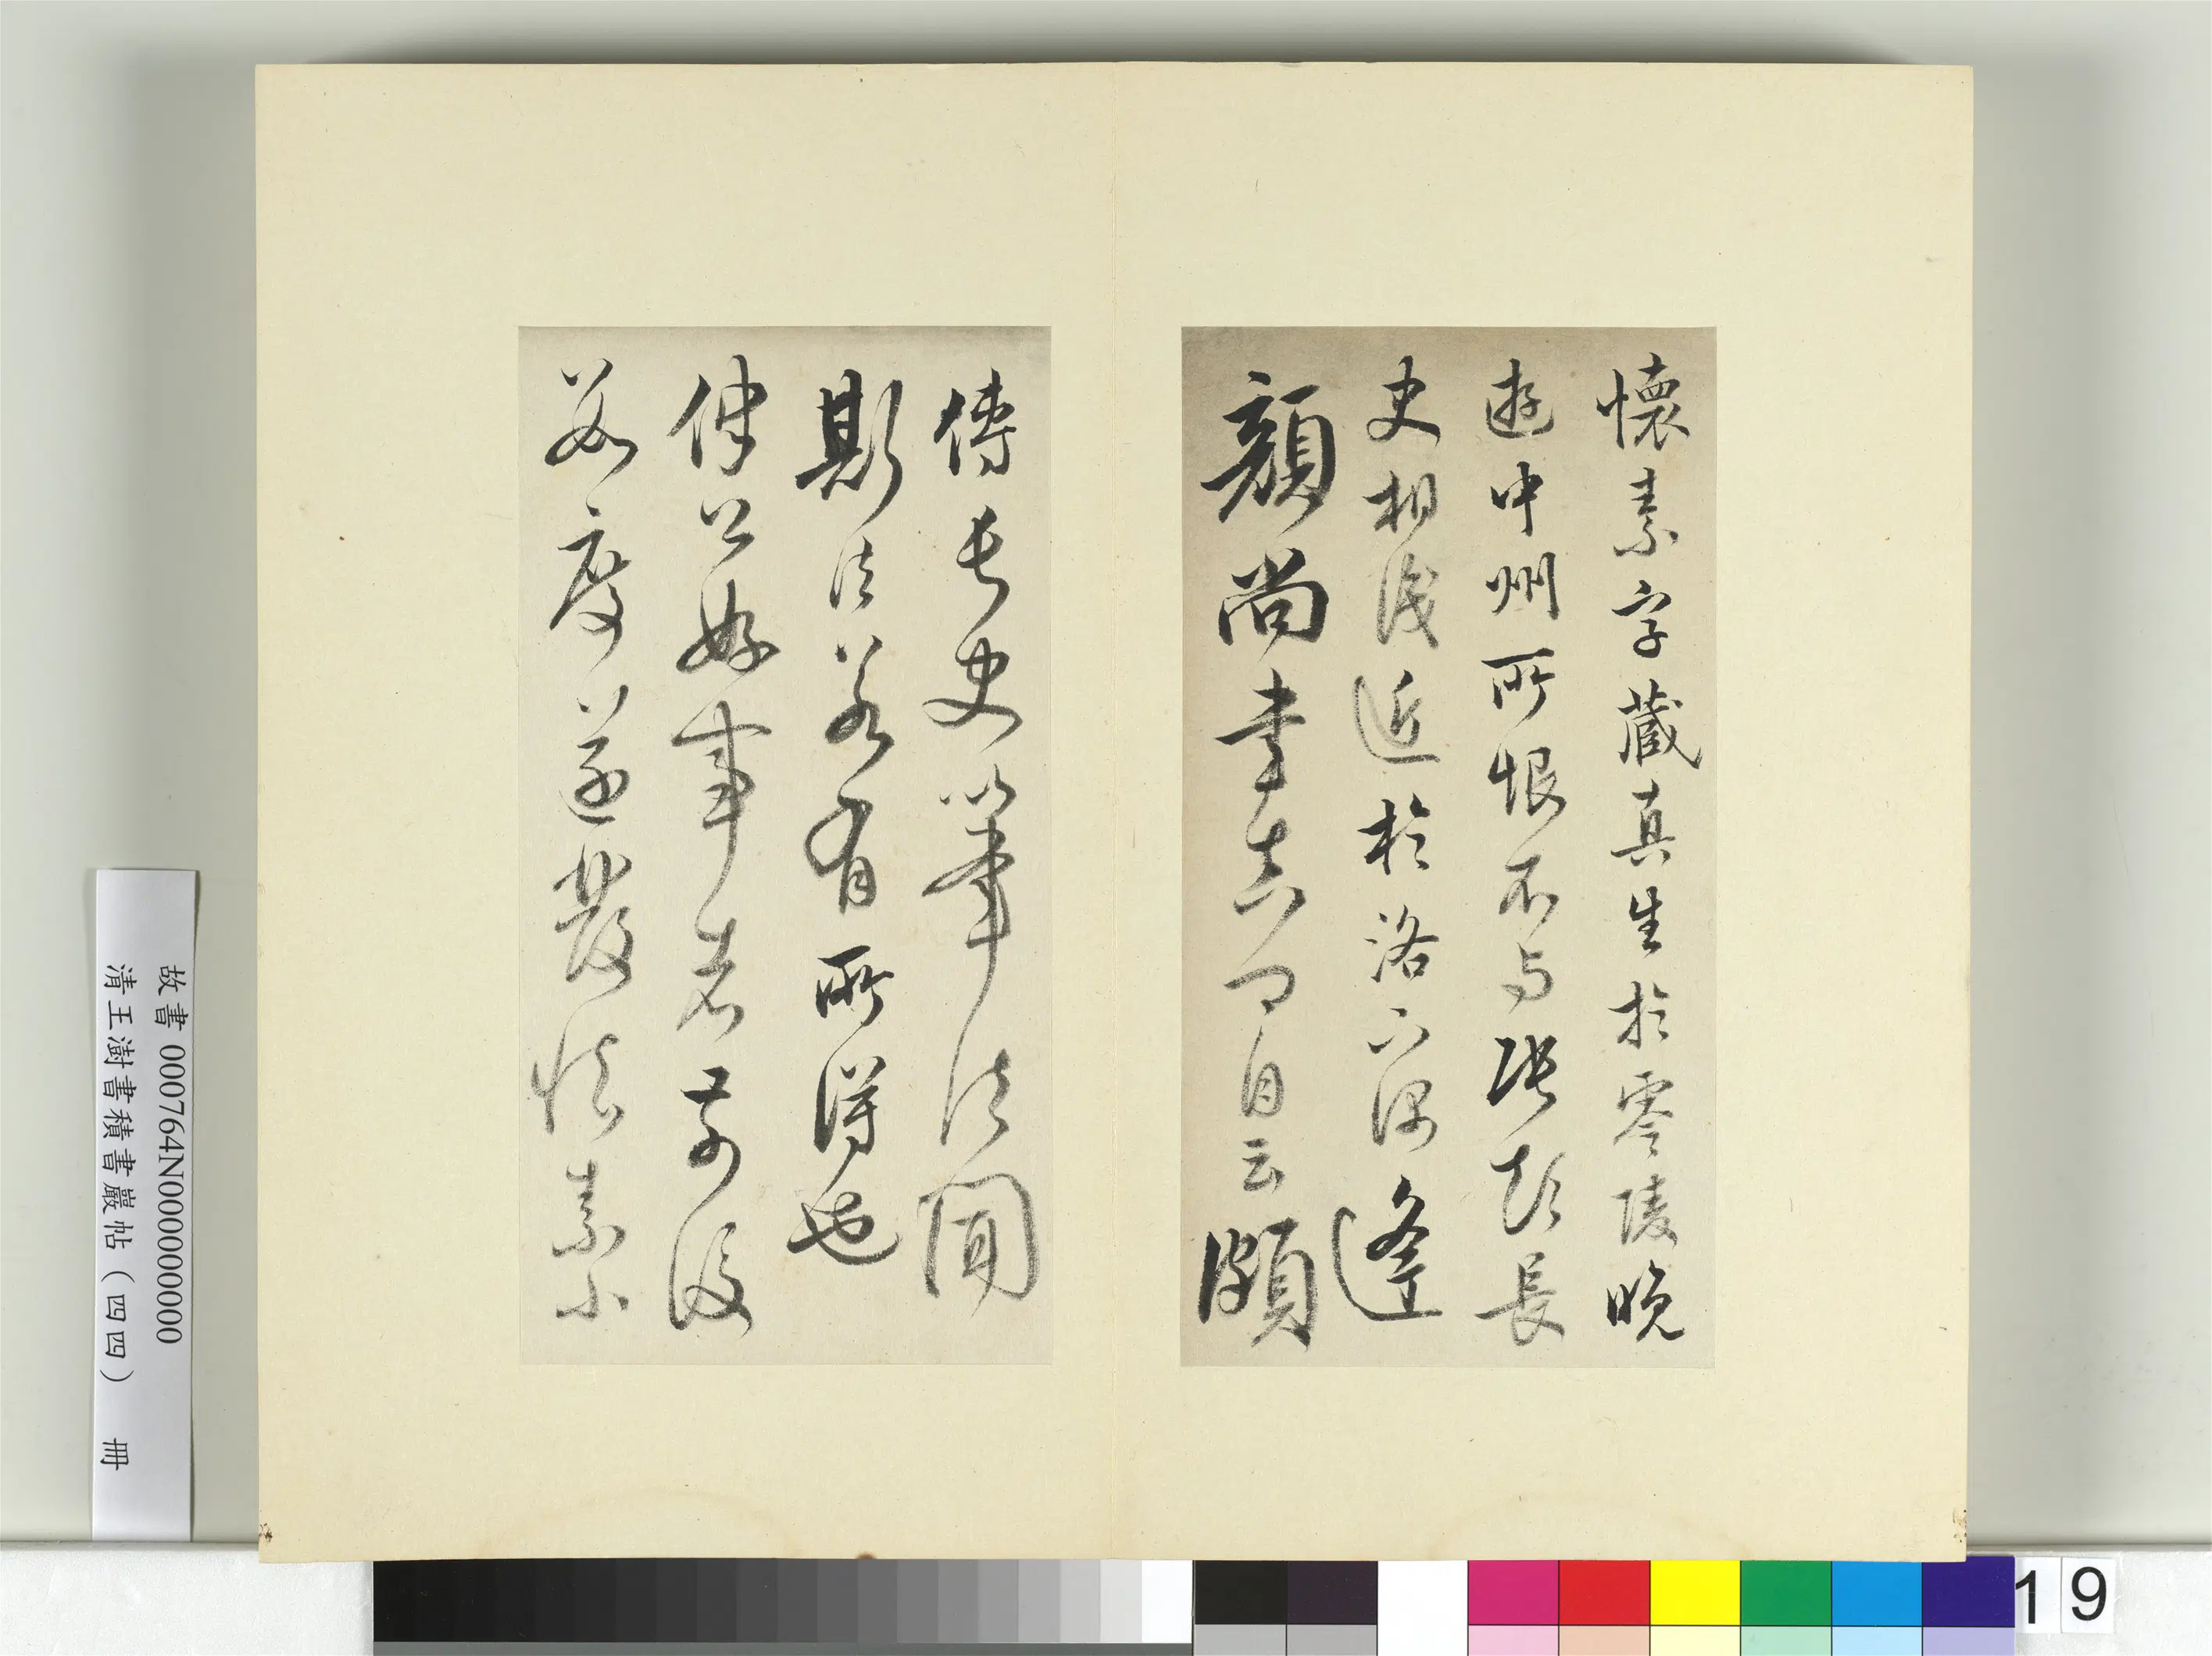 懷素字藏真生於零陵晚
遊中州所恨不与張顛長
史相識近於洛下偶逢
顏尚書真卿自云頗
傳長史筆法聞
斯法若有所得也
律公好事者前後
數度遂發懷素小
故書 000764N000000000
清王澍書積書巖帖（四四） 冊
19